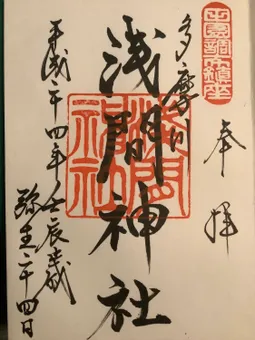 奉拝
多摩川
浅間神社
平成二十四年壬辰歳
弥生二十四日
浅間神社